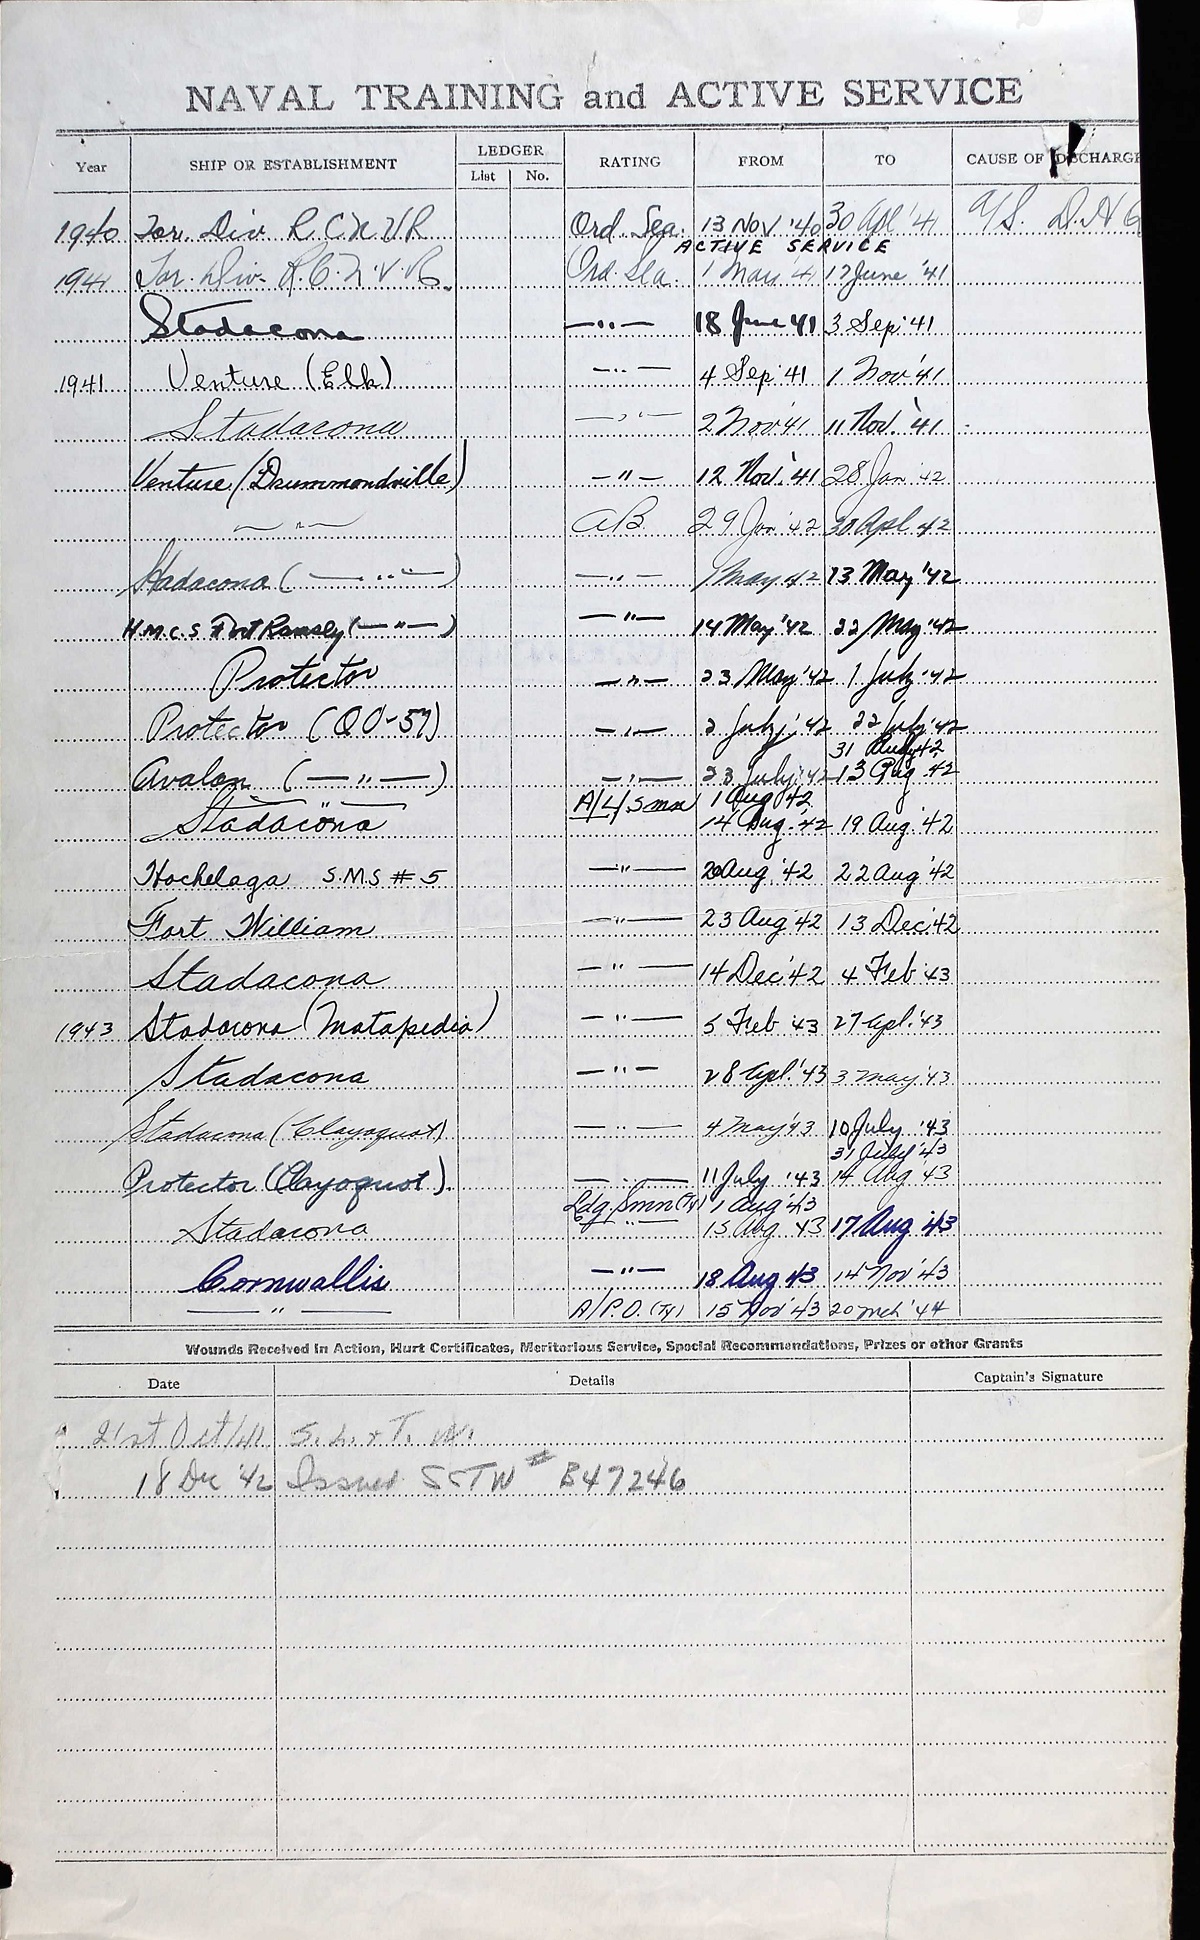 NAVAL TRAINING and ACTIVE SERVICE
Year SHIP OR ESTABLISHMENT LEDGER RATING FROM TO CAUSE OF DISCHARGE
List No.
1940 Tor. Div R C N V R Ord. Sea. 13 Nov '40 30 Apl '41 A/S.
ACTIVE SERVICE
1941 Tor. Div. R.C.N.V.R. Ord. Sea. 1 May '41 17 June '41
Stadacona —"— 18 June 41 3 Sep '41
1941 Venture (Elk) —"— 4 Sep '41 1 Nov '41
Stadacona —"— 2 Nov '41 11 Nov. '41
Venture (Drummondville) —"— 12 Nov. '41 28 Jan '42
—"— A.B. 29 Jan '42 30 Apl 42
Stadacona (—"—) —"— 1 May 42 13 May '42
H.M.C.S Fort Ramsey (—"—) —"— 14 May '42 22 May '42
Protector —"— 23 May '42 1 July '42
Protector (QO-57) —"— 2 July '42 22 July '42
31 '42
Avalon (—"—) —"— 23 July '42 13 Aug '42
—"— A/L/Smn 1 Aug 42
Stadacona 14 Aug. '42 19 Aug. '42
Hochelaga S.M.S # 5 —"— 20 Aug. '42 22 Aug '42
Fort William —"— 23 Aug '42 13 Dec '42
Stadacona —"— 14 Dec '42 4 Feb '43
1943 Stadacona (Matapedia) —"— 5 Feb '43 27 Apl. '43
Stadacona —"— 28 Apl. '43 3 May '43
Stadacona (Clayoquot) —"— 4 May '43 10 July '43
31 July '43
Protector (Clayoquot). —"— 11 July '43 14 Aug '43
Ldg. Smn (Ty) 1 Aug '43
Stadacona —"— 15 Aug 43 17 Aug '43
Cornwallis —"— 18 Aug 43 14 Nov '43
—"— A/P.O. (Ty) 15 Nov '43 20 Mch '44
Wounds Received in Action, Hurt Certificates, Meritorious Service, Special Recommendations, Prizes or other Grants
Date Details Captain's Signature
21st Oct/41 S. L. & T. W.
18 Dec '42 Issued S & T W # B47246